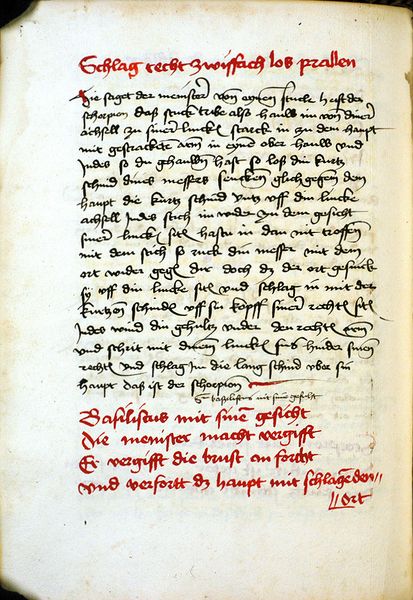 Schlag recht zwiffach los prallen
Hie saget der meinster von eynem stucke heist der
schorpion daß stuck tribe also hauwe im von diner
achseln zu siner lincken starck in zu dem haupt
mit gestracktem arm in eyne ober hauwe und
Indes so du gehauwen hast so loß die kurtz
schnid dines messers sencken glich gegen dem
haupt die kurtz schnid untz uff din lincke
achseln Indes stich im wider zu dem gesicht
siner lincken siten hastu in dan nit troffen
mit dem stich so ruck din messer mit dem
ort wider gegen dir doch dz der ort gesencke
sy uff din lincke siten und schlag in mit der
kurtzen schnide uff sin kopff siner rechten siten
Indes wind din gehultz under den rechten arm
und schrit mit dinem lincken fuß hinder sinen
rechten und schlag Im die lang schnid uber sin
haupt daß ist der schorpion
basiliscus mit sine gesicht
Basiliscus mit sinē gesicht
Die meinster macht vergifft
Er vergifft die brust an forcht
und verfortt dz haupt mit schlagē den
ort